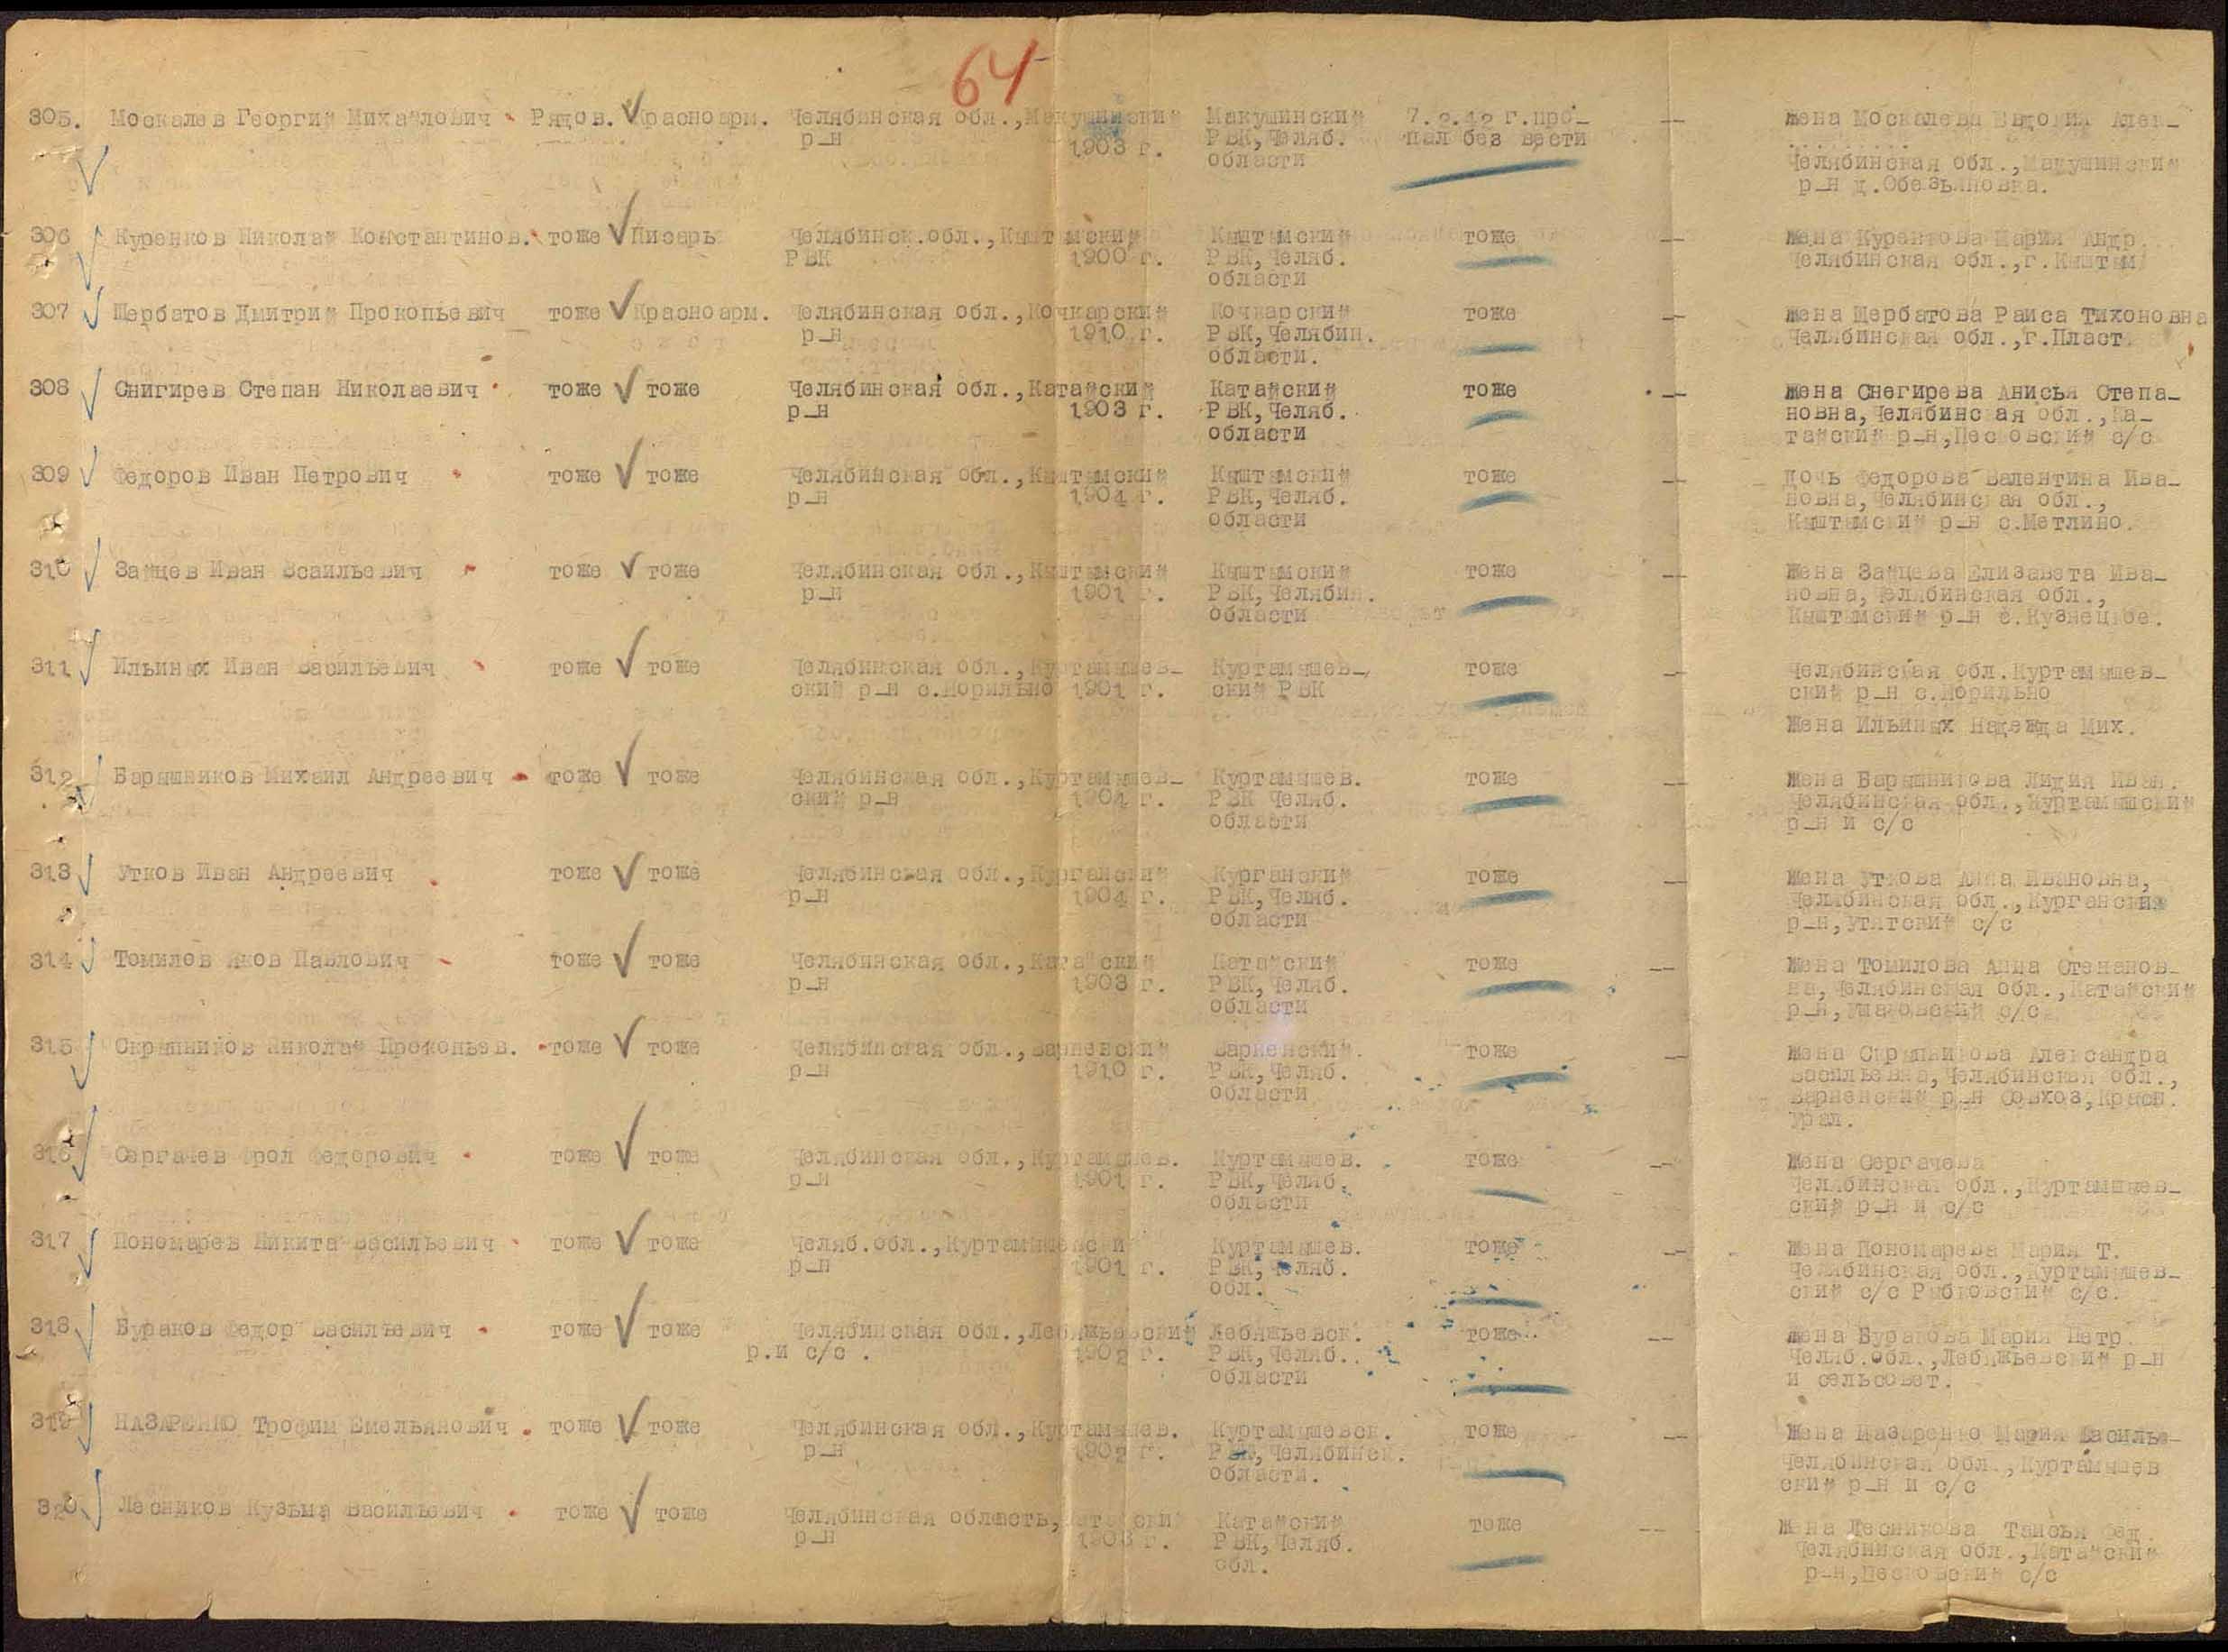 64
305. Москалев Георгий Михайлович Рядов. Красноарм. Челябинская обл., Макушинский Макушинский 7.2.42 г. про_ __ Жена Москалева Евдокия Алек_
р_н 1903 г. РВК, Челяб. пал без вести
области Челябинская обл., Макушинский
р_н д.Обезьяновка.
306 Куренков Николай Константинов. тоже Писарь Челябинск.обл., Кыштымский Кыштымский тоже __ Жена Мария Андр.
РВК 1900 г. РВК, Челяб. Челябинская обл., г.Кыштым
области
307 Щербатов Дмитрий Прокопьевич тоже Красноарм. Челябинская обл., Кочкарский Кочкарский тоже __ Жена Щербатова Раиса Тихоновна
р_н 1910 г. РВК, Челябин. Челябинская обл., г.Пласт
области.
308 Снигирев Степан Николаевич тоже тоже Челябинская обл., Катайский Катайский тоже __ Жена Снегирева Анисья Степа_
р_н 1903 г. РВК, Челяб. новна, Челябинская обл., Ка_
области тайский р_н, Песковский с/с
309 Федоров Иван Петрович тоже тоже Челябинская обл., Кыштымский Кыштымский тоже __ дочь Федорова Валентина Ива_
р_н 1904 г. РВК, Челяб. новна, Челябинская обл.,
области Кыштымский р_н с.Метлино.
310 Зайцев Иван Всаильевич тоже тоже Челябинская обл., Кыштымский Кыштымский тоже __ Жена Зайцева Елизавета Ива_
р_н 1901 г. РВК, Челябин. новна, Челябинская обл.,
области Кыштымский р_н с.Кузнецкое.
311 Ильиных Иван Васильевич тоже тоже Челябинская обл., Куртамышев_ Куртамышев_ тоже __ Челябинская обл.Куртамышев_
ский р_н 1901 г. ский РВК ский р_н
Жена Ильиных Надежда Мих.
312 Барышников Михаил Андреевич тоже тоже Челябинская обл., Куртамышев_ Куртамышев. тоже __ Жена Барышникова Лидия Иван.
ский р_н 1904 г. РВК Челяб. Челябинская обл., Куртамышский
области р_н и с/с
313 Утков Иван Андреевич тоже тоже Челябинская обл., Курганский Курганский тоже __ Жена Уткова Анна Ивановна,
р_н 1904 г. РВК, Челяб. Челябинская обл., Курганский
области р_н, Утятский с/с
314 Томилов Яков Павлович тоже тоже Челябинская обл., Катайский Катайский тоже __ Жена Томилова Анна Степанов_
р_н 1903 г. РВК, Челяб. на, Челябинская обл., Катайский
области р_н, Ушаковский с/с
315 Скрыпников Николай Прокопьев. тоже тоже Челябинская обл., Варненский Варненский. тоже __ Жена Скрыпникова Александра
р_н 1910 г. РВК, Челяб. Васильевна, Челябинская обл.,
области Варненский р_н совхоз, Красн.
Урал.
316 Сергачев Фрол Федорович тоже тоже Челябинская обл., Куртамышев. Куртамышев. тоже __ Жена Сергачева
р_н 1901 г. РВК, Челяб. Челябинская обл., Куртамышев_
области ский р_н и с/с
317 Пономарев Никита Васильевич тоже тоже Челяб.обл., Куртамышевский Куртамышев. тоже __ Жена Пономарева Мария Т.
р_н 1901 г. РВК, Челяб. Челябинская обл., Куртамышев_
обл. ский с/с Рыбковский с/с.
318 Бураков Федор Васильевич тоже тоже Челябинская обл., Лебяжьевский Лебяжьевск. тоже __ Жена Буракова Мария Петр.
р.и с/с . 1902 г. РВК, Челяб. Челяб.обл., Лебяжьевский р_н
области и сельсовет.
319 НАЗАРЕНКО Трофим Емельянович тоже тоже Челябинская обл., Куртамышев. Куртамышевск. тоже __ Жена Назаренко Мария Василье_
р_н 1902 г. РВК, Челябинск. Челябинская обл., Куртамышев
области. ский р_н и с/с
320 Лесников Кузьма Васильевич тоже тоже Челябинская область, Катайский Катайский тоже __ Жена Лесникова Таисья Фед.
р_н 1903 г. РВК, Челяб. Челябинская обл., Катайский
обл. р_н, Песковский с/с